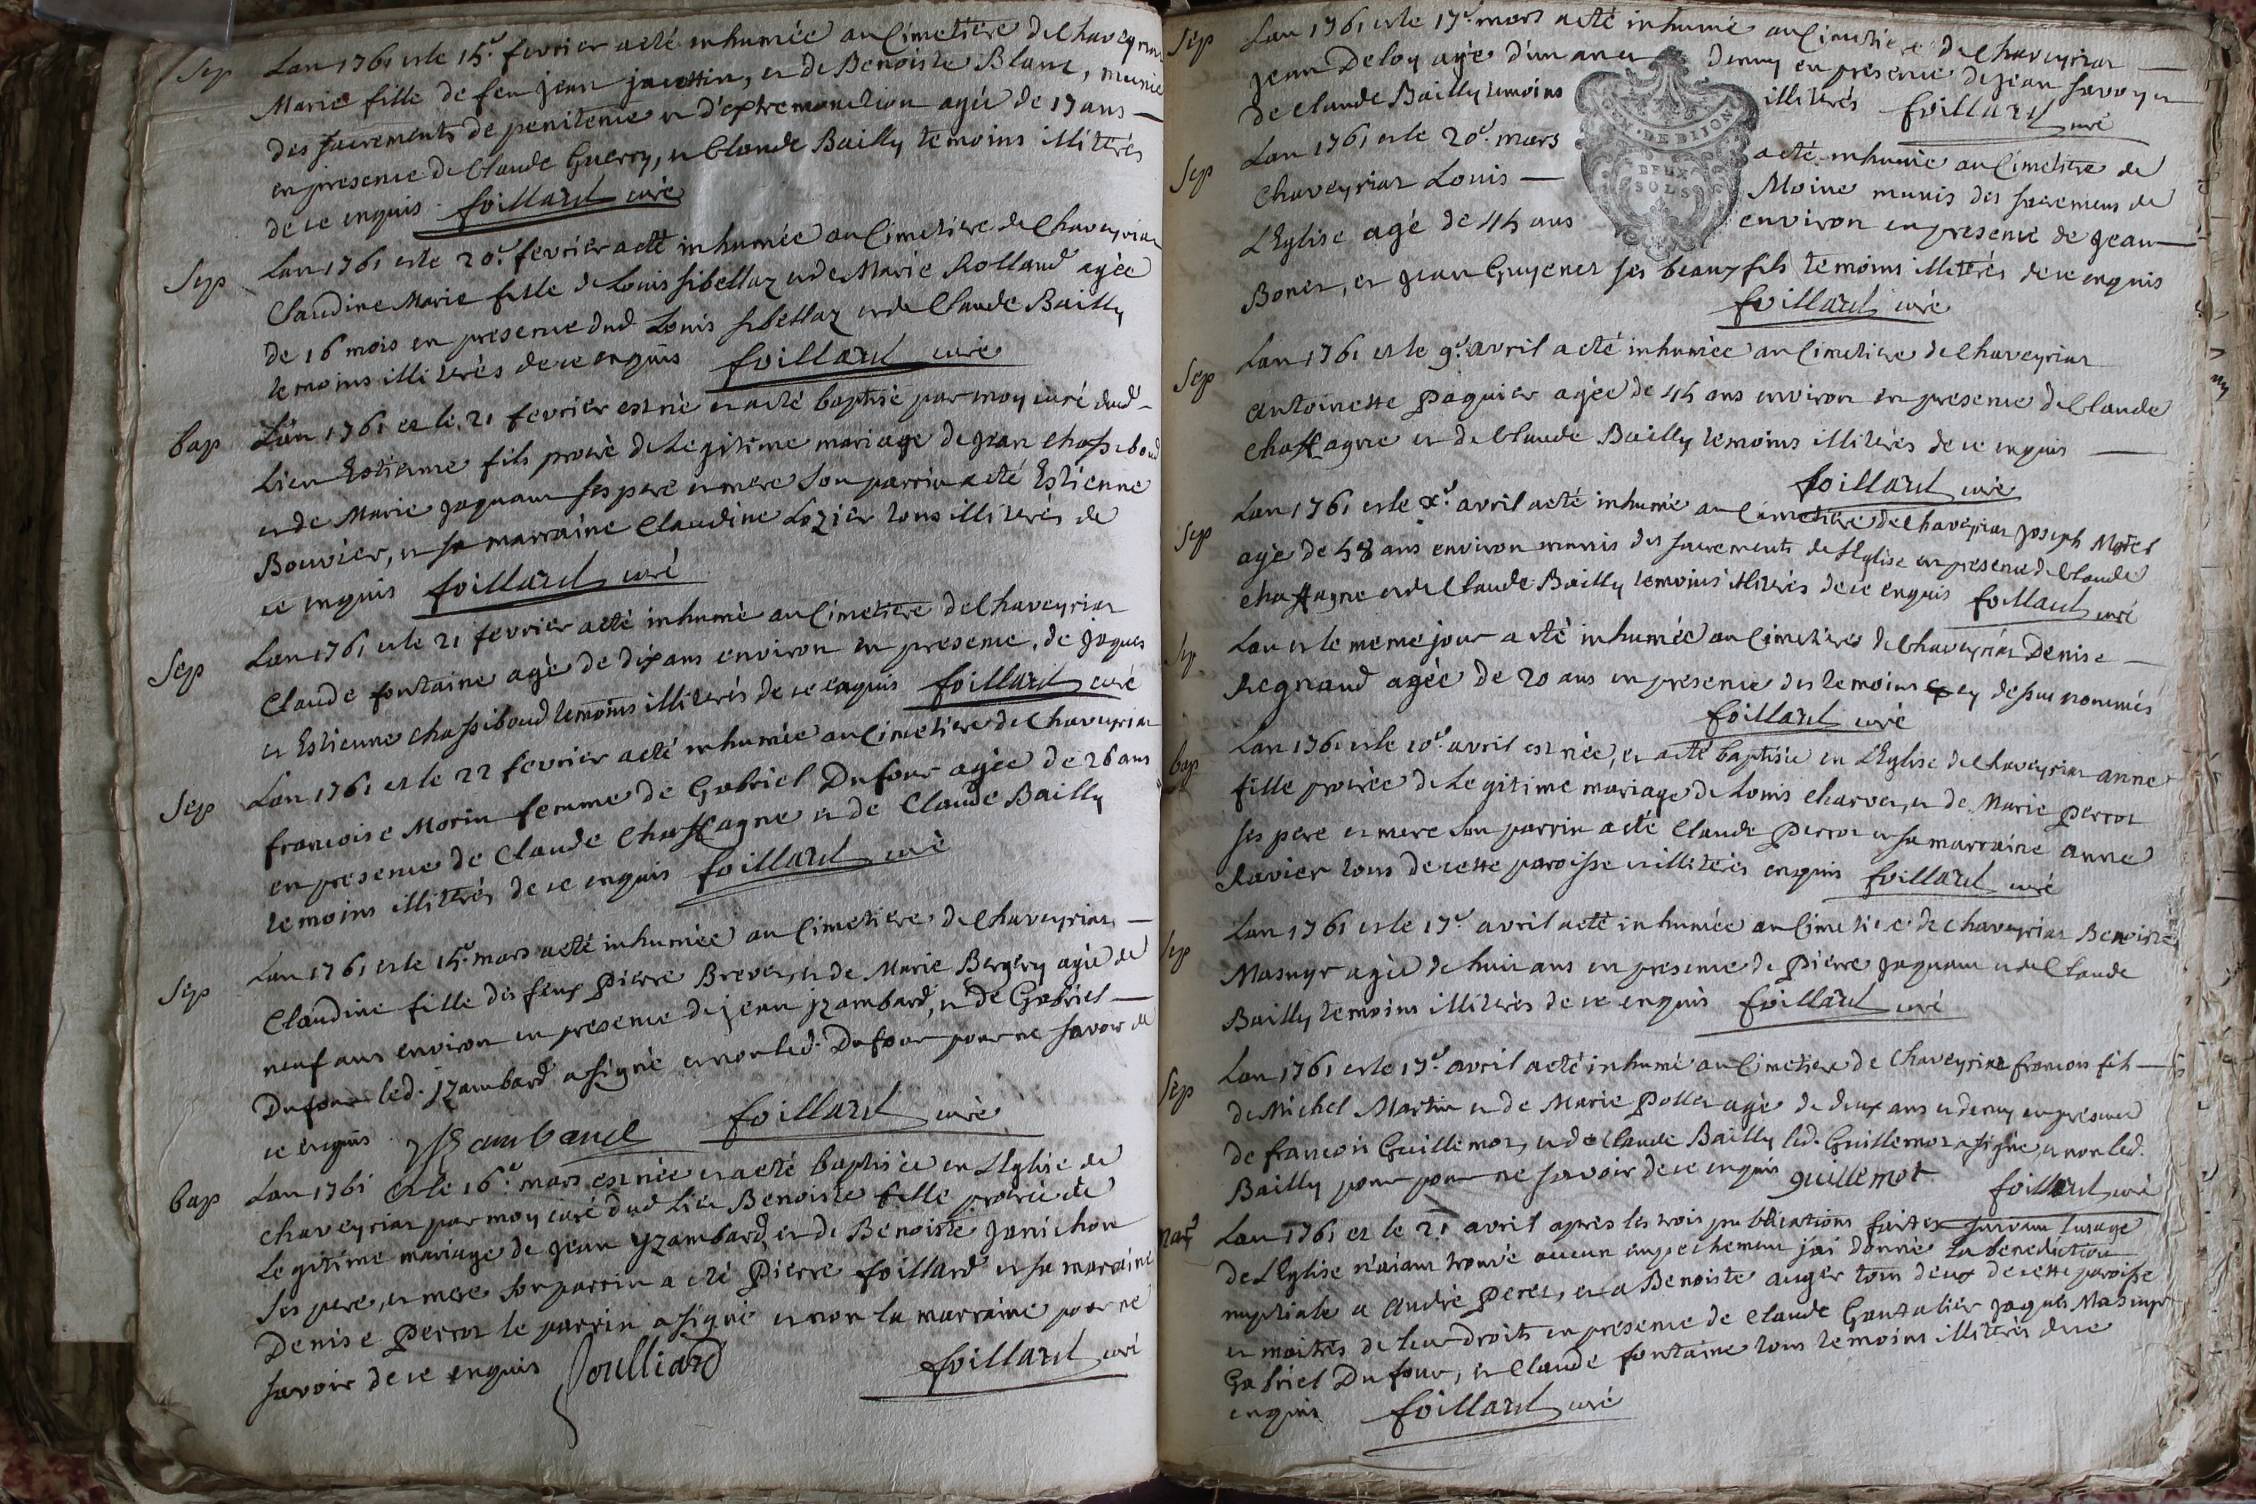 Sep Lan 1761 et le 15e fevrier a eté inhumée au Cimetiere de Chaveyriat
Marie fille de feu jean jacettin, et de Benoiste Blanc, munie
des sacrements de penitence et d'extremonction agée de 17 ans
en presence de Claude Guerry, et Claude Bailly temoins illiterés
de ce enquis foillard curé
Sep Lan 1761 et le 20e fevrier a eté inhumée au Cimetiere de Chaveyriat
Claudine Marie fille de Louis sibellaz et de Marie Rolland agée
de 16 mois en presence dud Louis sibellaz et de Claude Bailly
temoins illiterés de ce enquis foillard curé
bap Lan 1761 et le 21 fevrier est né et a eté baptisé par moy curé dud
Lieu Estienne fils procréé de Legitime mariage de jean chassiboud
et de Marie jaquam ses pere et mere son parrin a eté Estienne
Bouvier, et sa marraine Claudine Lozier tous illiterés de
ce enquis foillard curé
Sep Lan 1761 et le 21 fevrier a eté inhumé au Cimetiere de Chaveyriat
Claude fontaine agé de dix ans environ en presence, de jaques
et Estienne chassiboud temoins illiterés de ce enquis foillard curé
Sep Lan 1761 et le 22 fevrier a eté inhumée au Cimetiere de Chaveyriat
francoise Morin femme de Gabriel Dufour agée de 26 ans
en presence de Claude Chassagne et de Claude Bailly
temoins illiterés de ce enquis foillard curé
Sep Lan 1761 et le 15e mars a eté inhumée au Cimetiere de Chaveyriat
Claudine fille des feux Pierre Brevet, et de Marie Bergery agée de
neuf ans environ en presence de jean jzambard, et de Gabriel
Dufour led. jzambard a signé et non led. Dufour pour ne savoir de
ce enquis foillard curé
bap Lan 1761 et le 16e mars est née et a eté baptisée en L'Eglise de
Chaveyriat par moy curé dud Lieu Benoiste fille procréé de
Legitime mariage de jean yzambard, et de Benoiste janichon
ses pere, et mere son parrin a eté Pierre foillard et sa marraine
Denise Perrot le parrin a signé et non la marraine pour ne
savoir de ce enquis foulliard foillard curé
Sep Lan 1761 et le 17e mars a eté inhumé au Cimetiere de Chaveyriat
jean Deloy agé d'un an et demy en presence de jean savoy et
de Claude Bailly temoins illiterés foillard curé
GEN. DE DIJON
DEUX
SOLS
Sep Lan 1761 et le 20e mars a eté inhumé au Cimetiere de
Chaveyriat Louis Moine munis des sacremens de
L'Eglise agé de 45 ans environ en presence de jean
Bonet, et jean Guyenet ses beaux fils temoins illiterés de ce enquis
foillard curé
Sep Lan 1761 et le 9e avril a eté inhumée au Cimetiere de Chaveyriat
antoinette paquier agée de 45 ans environ en presence de Claude
Chassagne et de Claude Bailly temoins illiterés de ce enquis
foillard curé
Sep Lan 1761 et le xe avril a eté inhumé au Cimetiere de Chaveyriat joseph Morel
agé de 58 ans environ munis des sacrements de l'Eglise en presence de Claude
chassagne et de Claude Bailly temoins illiterés de ce enquis foillard curé
Sep Lan et le meme jour a eté inhumée au Cimetiere de Chaveyriat Denise
Regnaud agée de 20 ans en presence des temoins cy dessus nommés
foillard curé
bap Lan 1761 et le 10e avril est née, et a eté baptisée en L'Eglise de Chaveyriat anne
fille procréée de Legitime mariage de Louis Charvet, et de Marie perrot
ses pere et mere son parrin a eté Claude perrot et sa marraine anne
Ravier tous de cette paroisse illiterés enquis foillard curé
Sep Lan 1761 et le 17e avril a eté inhumée au Cimetiere de Chaveyriat Benoiste
Masuyr agée de huit ans en presence de pierre jaquam et de Claude
Bailly temoins illiterés de ce enquis foillard curé
Sep Lan 1761 et le 17e avril a eté inhumé au Cimetiere de Chaveyriat francois fils
de Michel Martin et de Marie Pollet agé de deux ans et demy en presence
de francois Guillemot, et de Claude Bailly led. Guillemot a signé et non led.
Bailly pour pour ne savoir de ce enquis guillemot foillard curé
mar Lan 1761 et le 21 avril apres les trois publications faites suivant lusage
de L'Eglise n'aiant trouvé aucun empechement j'ai donné La benediction
nuptiale a andré peret, et a Benoiste auger tous deux de cette paroisse
et maitres de leur droits en presence de Claude Gontalier jaques Masuyr
Gabriel Dufour, et Claude fontaine tous temoins illiterés de ce
enquis foillard curé